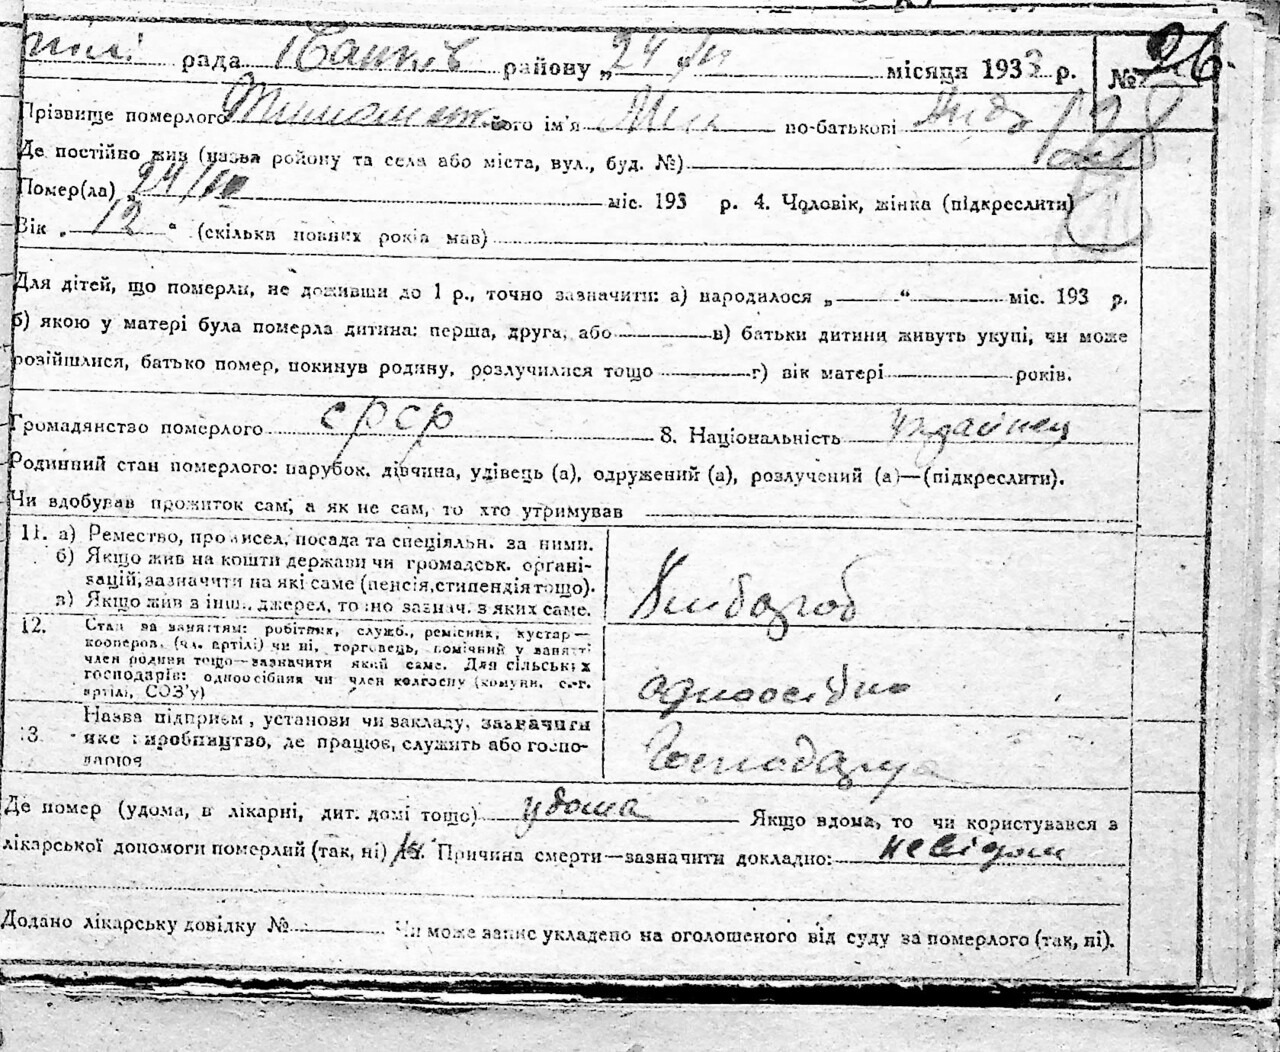 рада району „ 24 місяця 1933 р. № 26.
Прізвище померлого його ім'я по-батькові
Де постійно жив (назва ройону та села або міста, вул., буд. №)
Помер(ла) „ 24/III міс. 193 р. 4. Чоловік, жінка (підкреслити)
Вік „ 12 “ (скільки повних років мав)
Для дітей, що померли, не доживши до 1 р., точно зазначити: а) народилося „ “ міс. 193 р.
б) якою у матері була померла дитина: перша, друга, або в) батьки дитини живуть укупі, чи може
розійшлися, батько помер, покинув родину, розлучилися тощо г) вік матері років.
Громадянство померлого СРСР 8. Національність Українец
Родинний стан померлого: парубок, дівчина, удівець (а), одружений (а), розлучений (а)—(підкреслити).
Чи здобував прожиток сам, а як не сам, то хто утримував
11. а) Ремество, промисел, посада та спеціяльн. за ними.
б) Якщо жив на кошти держави чи громадськ. орґані-
зацій, зазначити на які саме (пенсія, стипендія тощо).
в) Якщо жив з інш. джерел, точно зазнач. з яких саме.
Хлібороб
12. Стан за заняттям: робітник, служб., ремісник, кустар—
кооперов. (чл. артілі) чи ні, торговець, помічний у занятті
член родини тощо—зазначити який саме. Для сільських
господарів: одноосібник чи член колгоспу (комуни, с.-г.
артілі, СОЗ'у)
одноосібно
13. Назва підприєм, установи чи закладу, зазначити
яке виробництво, де працює, служить або госпо-
дарює
Господарує
Де помер (удома, в лікарні, дит. домі тощо) удома Якщо вдома, то чи користувався з
лікарської допомоги померлий (так, ні) Причина смерти—зазначити докладно: невідом
Додано лікарську довідку № Чи може запис укладено на оголошеного від суду за померлого (так, ні).